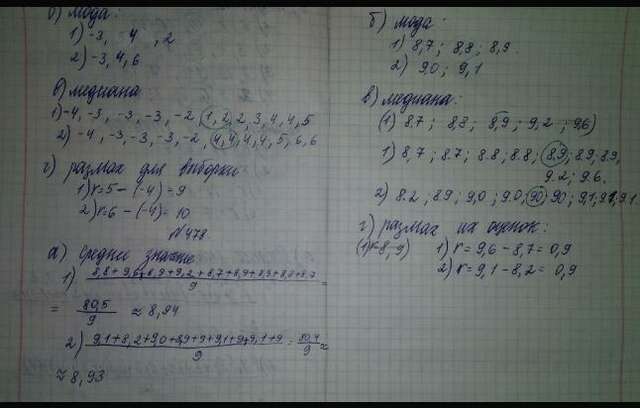 б) мода:
1) -3, 4, 2
2) -3, 4, 6
в) медиана
1) -4, -3, -3, -3, -2, 1, 2, 2, 3, 4, 4, 5
2) -4, -3, -3, -3, -2, 4, 4, 4, 4, 5, 6, 6
г) размах для выборки
1) r = 5 - (-4) = 9
2) r = 6 - (-4) = 10
№478
а) среднее значение
1) 8,8+9,6+8,9+9,2+8,7+8,9+8,9+8,8+8,7 / 9 =
= 80,5 / 9 ≈ 8,94
2) 9,1+8,2+9,0+8,9+9+9,1+9+9,1+9 / 9 = 80,4 / 9 ≈
≈ 8,93
б) мода:
1) 8,7; 8,8; 8,9
2) 9,0; 9,1
в) медиана:
(1) 8.7; 8.8; 8,9; 9,2; 9,6)
1) 8,7; 8.7; 8.8; 8.8; 8.9; 8.9; 8.9,
9.2; 9.6.
2) 8.2; 8.9; 9,0; 9.0; 9.0; 9.0; 9.1; 9.1; 9.1
г) размах их оценок:
1) r = 9,6 - 8,7 = 0,9
2) r = 9,1 - 8,2 = 0,9